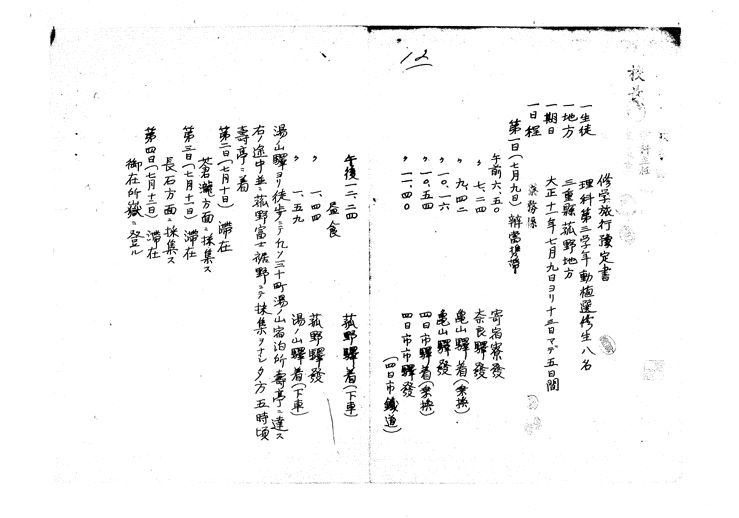 12
修学旅行豫定書
一生徒 理科第三学年動植選修生八名
一地方 三重縣菰野地方
一期日 大正十一年七月九日ヨリ十三日マデ五日間
一日程
第一日(七月九日) 辨當携帶
午前六、五〇 寄宿寮發
〃 七、二四 奈良驛發
〃 九、四二 亀山驛着(乗換)
〃 一〇、一六 亀山驛發
〃 一〇、五四 四日市驛着(乗換)
〃 一一、四〇 四日市市驛發
(四日市鐵道)
午後一二、二四 菰野驛着(下車)
昼食
〃 一、四四 菰野驛發
〃 一、五九 湯ノ山驛着(下車)
湯ノ山驛ヨリ徒歩ニテ凡ソ三十町湯ノ山宿泊所壽亭ニ達ス
右ノ途中並ニ菰野富士裾野ニテ採集ヲナシ夕方五時頃
壽亭ニ着
第二日(七月十日) 滞在
蒼瀧方面ニ採集ス
第三日(七月十一日) 滞在
長石方面ニ採集ス
第四日(七月十二日) 滞在
御在所嶽ニ登ル